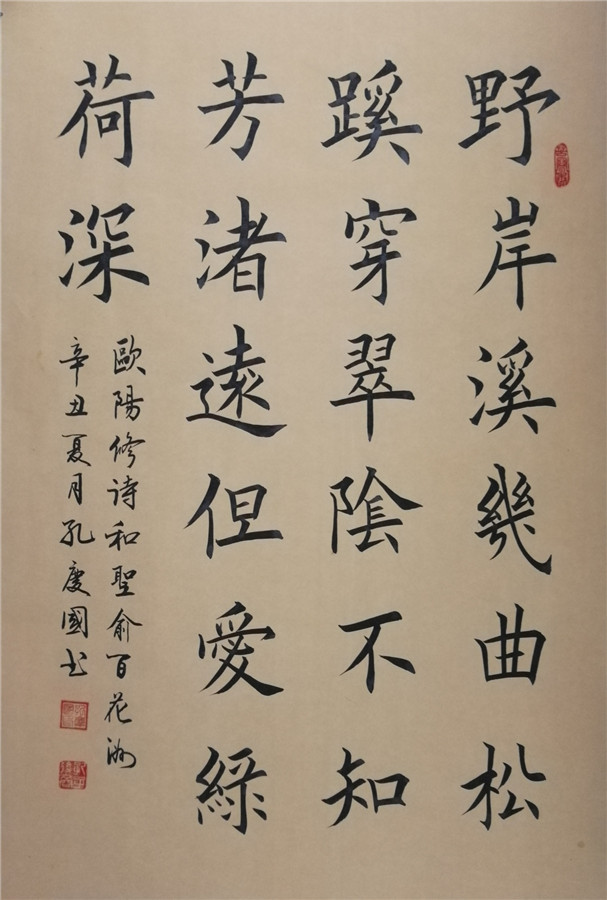 野岸溪幾曲松
蹊穿翠陰不知
芳渚遠但愛綠
荷深
歐陽修诗和聖俞百花洲
辛丑夏月孔慶國书